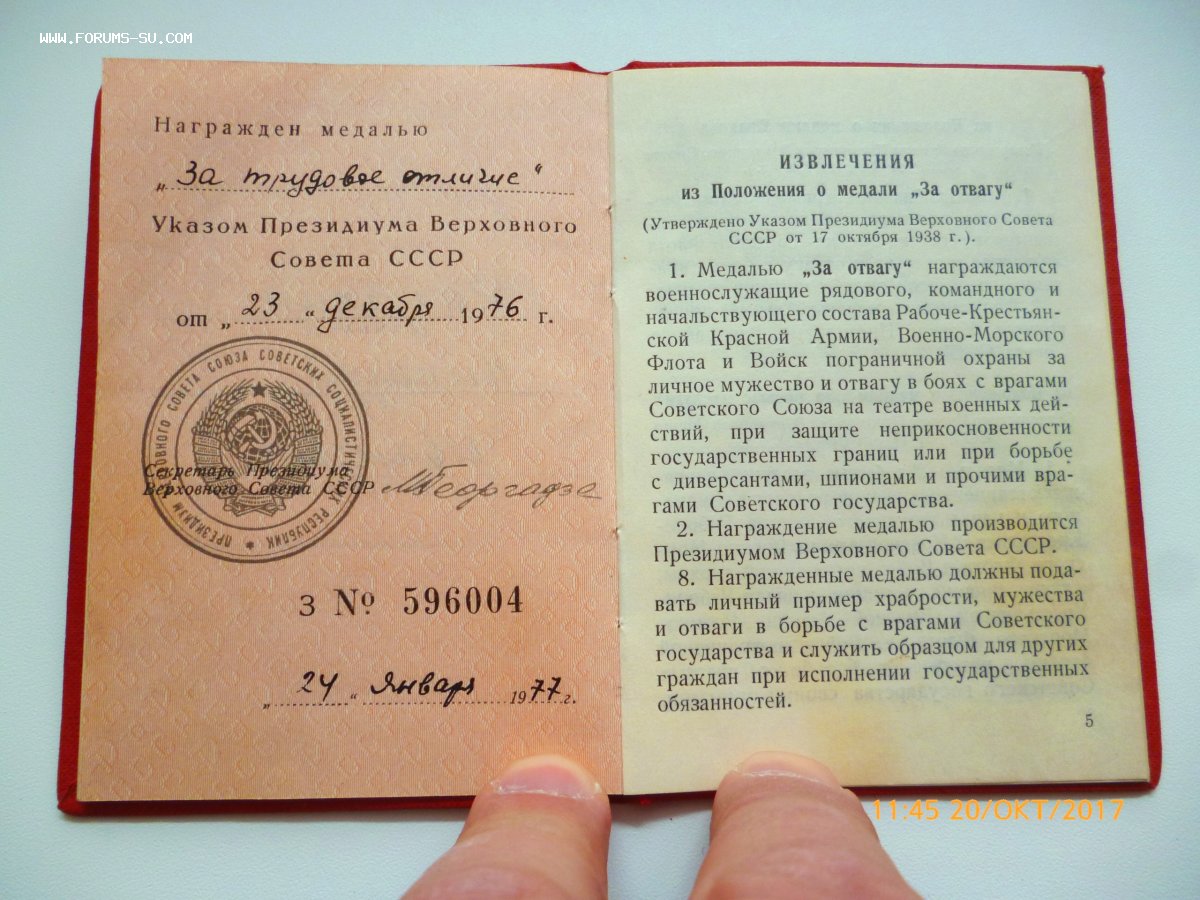 WWW.FORUMS-SU.COM
Награжден медалью
„За трудовое отличие“
Указом Президиума Верховного
Совета СССР
от „23“ декабря 1976 г.
ПРЕЗИДИУМ ВЕРХОВНОГО СОВЕТА СОЮЗА СОВЕТСКИХ СОЦИАЛИСТИЧЕСКИХ РЕСПУБЛИК
Секретарь Президиума
Верховного Совета СССР МГеоргадзе
З № 596004
„24“ Января 1977 г.
ИЗВЛЕЧЕНИЯ
из Положения о медали „За отвагу“
(Утверждено Указом Президиума Верховного Совета
СССР от 17 октября 1938 г.).
1. Медалью „За отвагу“ награждаются
военнослужащие рядового, командного и
начальствующего состава Рабоче-Крестьян-
ской Красной Армии, Военно-Морского
Флота и Войск пограничной охраны за
личное мужество и отвагу в боях с врагами
Советского Союза на театре военных дей-
ствий, при защите неприкосновенности
государственных границ или при борьбе
с диверсантами, шпионами и прочими вра-
гами Советского государства.
2. Награждение медалью производится
Президиумом Верховного Совета СССР.
8. Награжденные медалью должны пода-
вать личный пример храбрости, мужества
и отваги в борьбе с врагами Советского
государства и служить образцом для других
граждан при исполнении государственных
обязанностей.
5
11:45 20/ОКТ/2017